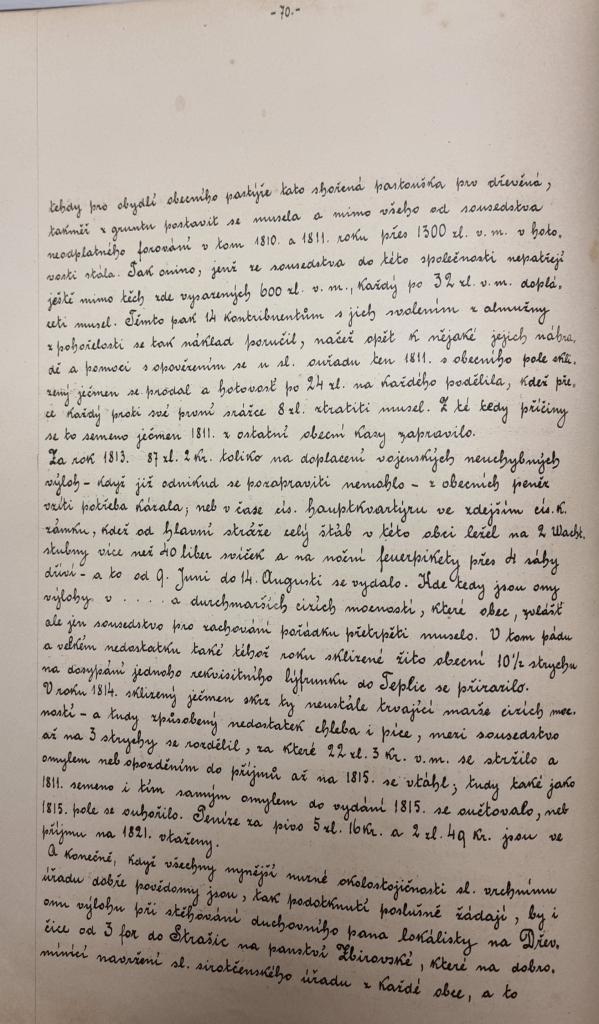 -70.-
tehdy pro obydlí obecního pastýře tato shořená pastouška pro dřevěná,
takměř z gruntu postavit se musela a mimo všeho od sousedstva
neodplatného forování v tom 1810. a 1811. roku přes 1300 zl. v. m. v hoto.
vosti stála. Tak onino, jenž ze sousedstva do této společnosti nepatřejí
ještě mimo těch zde vysazených 600 zl. v. m., každý po 32 zl. v. m. doplá.
ceti musel. Těmto pak 14 kontribuentům s jich svolením z almužny
z pohořelosti se tak náklad poručil, načež opět k nějaké jejich náhra.
dě a pomoci s opověřením se u sl. ouřadu ten 1811. s obecního pole skli.
zený ječmen se prodal a hotovosť po 24 zl. na každého podělila, kdež pře.
ce každý proti své první srážce 8 zl. ztratiti musel. Z té tedy příčiny
se to semeno ječmen 1811. z ostatní obecní kasy zapravilo.
Za rok 1813. 87 zl. 2 kr. toliko na doplacení vojenských neuchybných
výloh - když již odnikud se pozapraviti nemohlo - z obecních peněz
vzíti potřeba kázala; neb v čase cís. hauptkvartýru ve zdejším cís. k.
zámku, kdež od hlavní stráže celý štáb v této obci ležel na 2 Wacht.
stubny více než 40 liber svíček a na noční feuerpikety přes 4 sáhy
dříví - a to od 9. Juni do 14. Augusti se vydalo. Kde tedy jsou ony
výlohy v . . . . a durchmarších cizích mocností, které obec, zvlášť
ale jen sousedstvo pro zachování pořádku přetrpěti muselo. V tom pádu
a velkém nedostatku také téhož roku sklizené žito obecní 10½ strychu
na dosypání jednoho rekvisitního lýfrunku do Teplic se přirazilo.
V roku 1814. sklizený ječmen skrz ty neustále trvající marše cizích moc.
ností - a tudy způsobený nedostatek chleba i píce, mezi sousedstvo
až na 3 strychy se rozdělil, za které 22 zl. 3 kr. v. m. se stržilo a
omylem neb opozděním do příjmů až na 1815. se vtáhl; tudy také jako
1811. semeno i tím samým omylem do vydání 1815. se oučtovalo, neb
1815. pole se ouhořilo. Peníze za pivo 5 zl. 16 kr. a 2 zl. 49 kr. jsou ve
příjmu na 1821. vtaženy.
A konečně, když všechny nynější nuzné okolostojičnosti sl. vrchnímu
úřadu dobře povědomy jsou, tak podotknutí poslušně žádají, by i
onu výlohu při stěhování duchovního pana lokálisty na Dřev.
číce od 3 for do Strašic na panství Zbirovské, které na dobro.
míníci navržení sl. sirotčenského úřadu z každé obce, a to